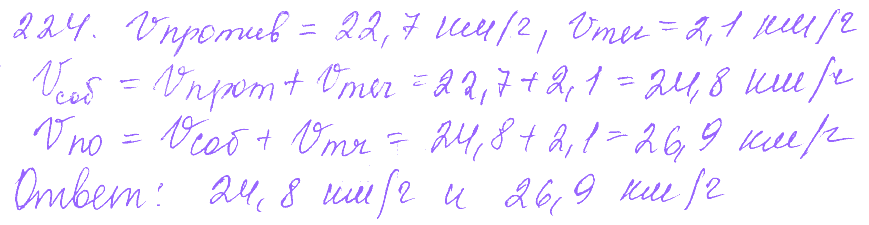 224. Vпротив = 22,7 км/г, Vтег = 2,1 км/г
Vсоб = Vпрот + Vтег = 22,7 + 2,1 = 24,8 км/г
Vпо = Vсоб + Vтг = 24,8 + 2,1 = 26,9 км/г
Ответ: 24,8 км/г и 26,9 км/г